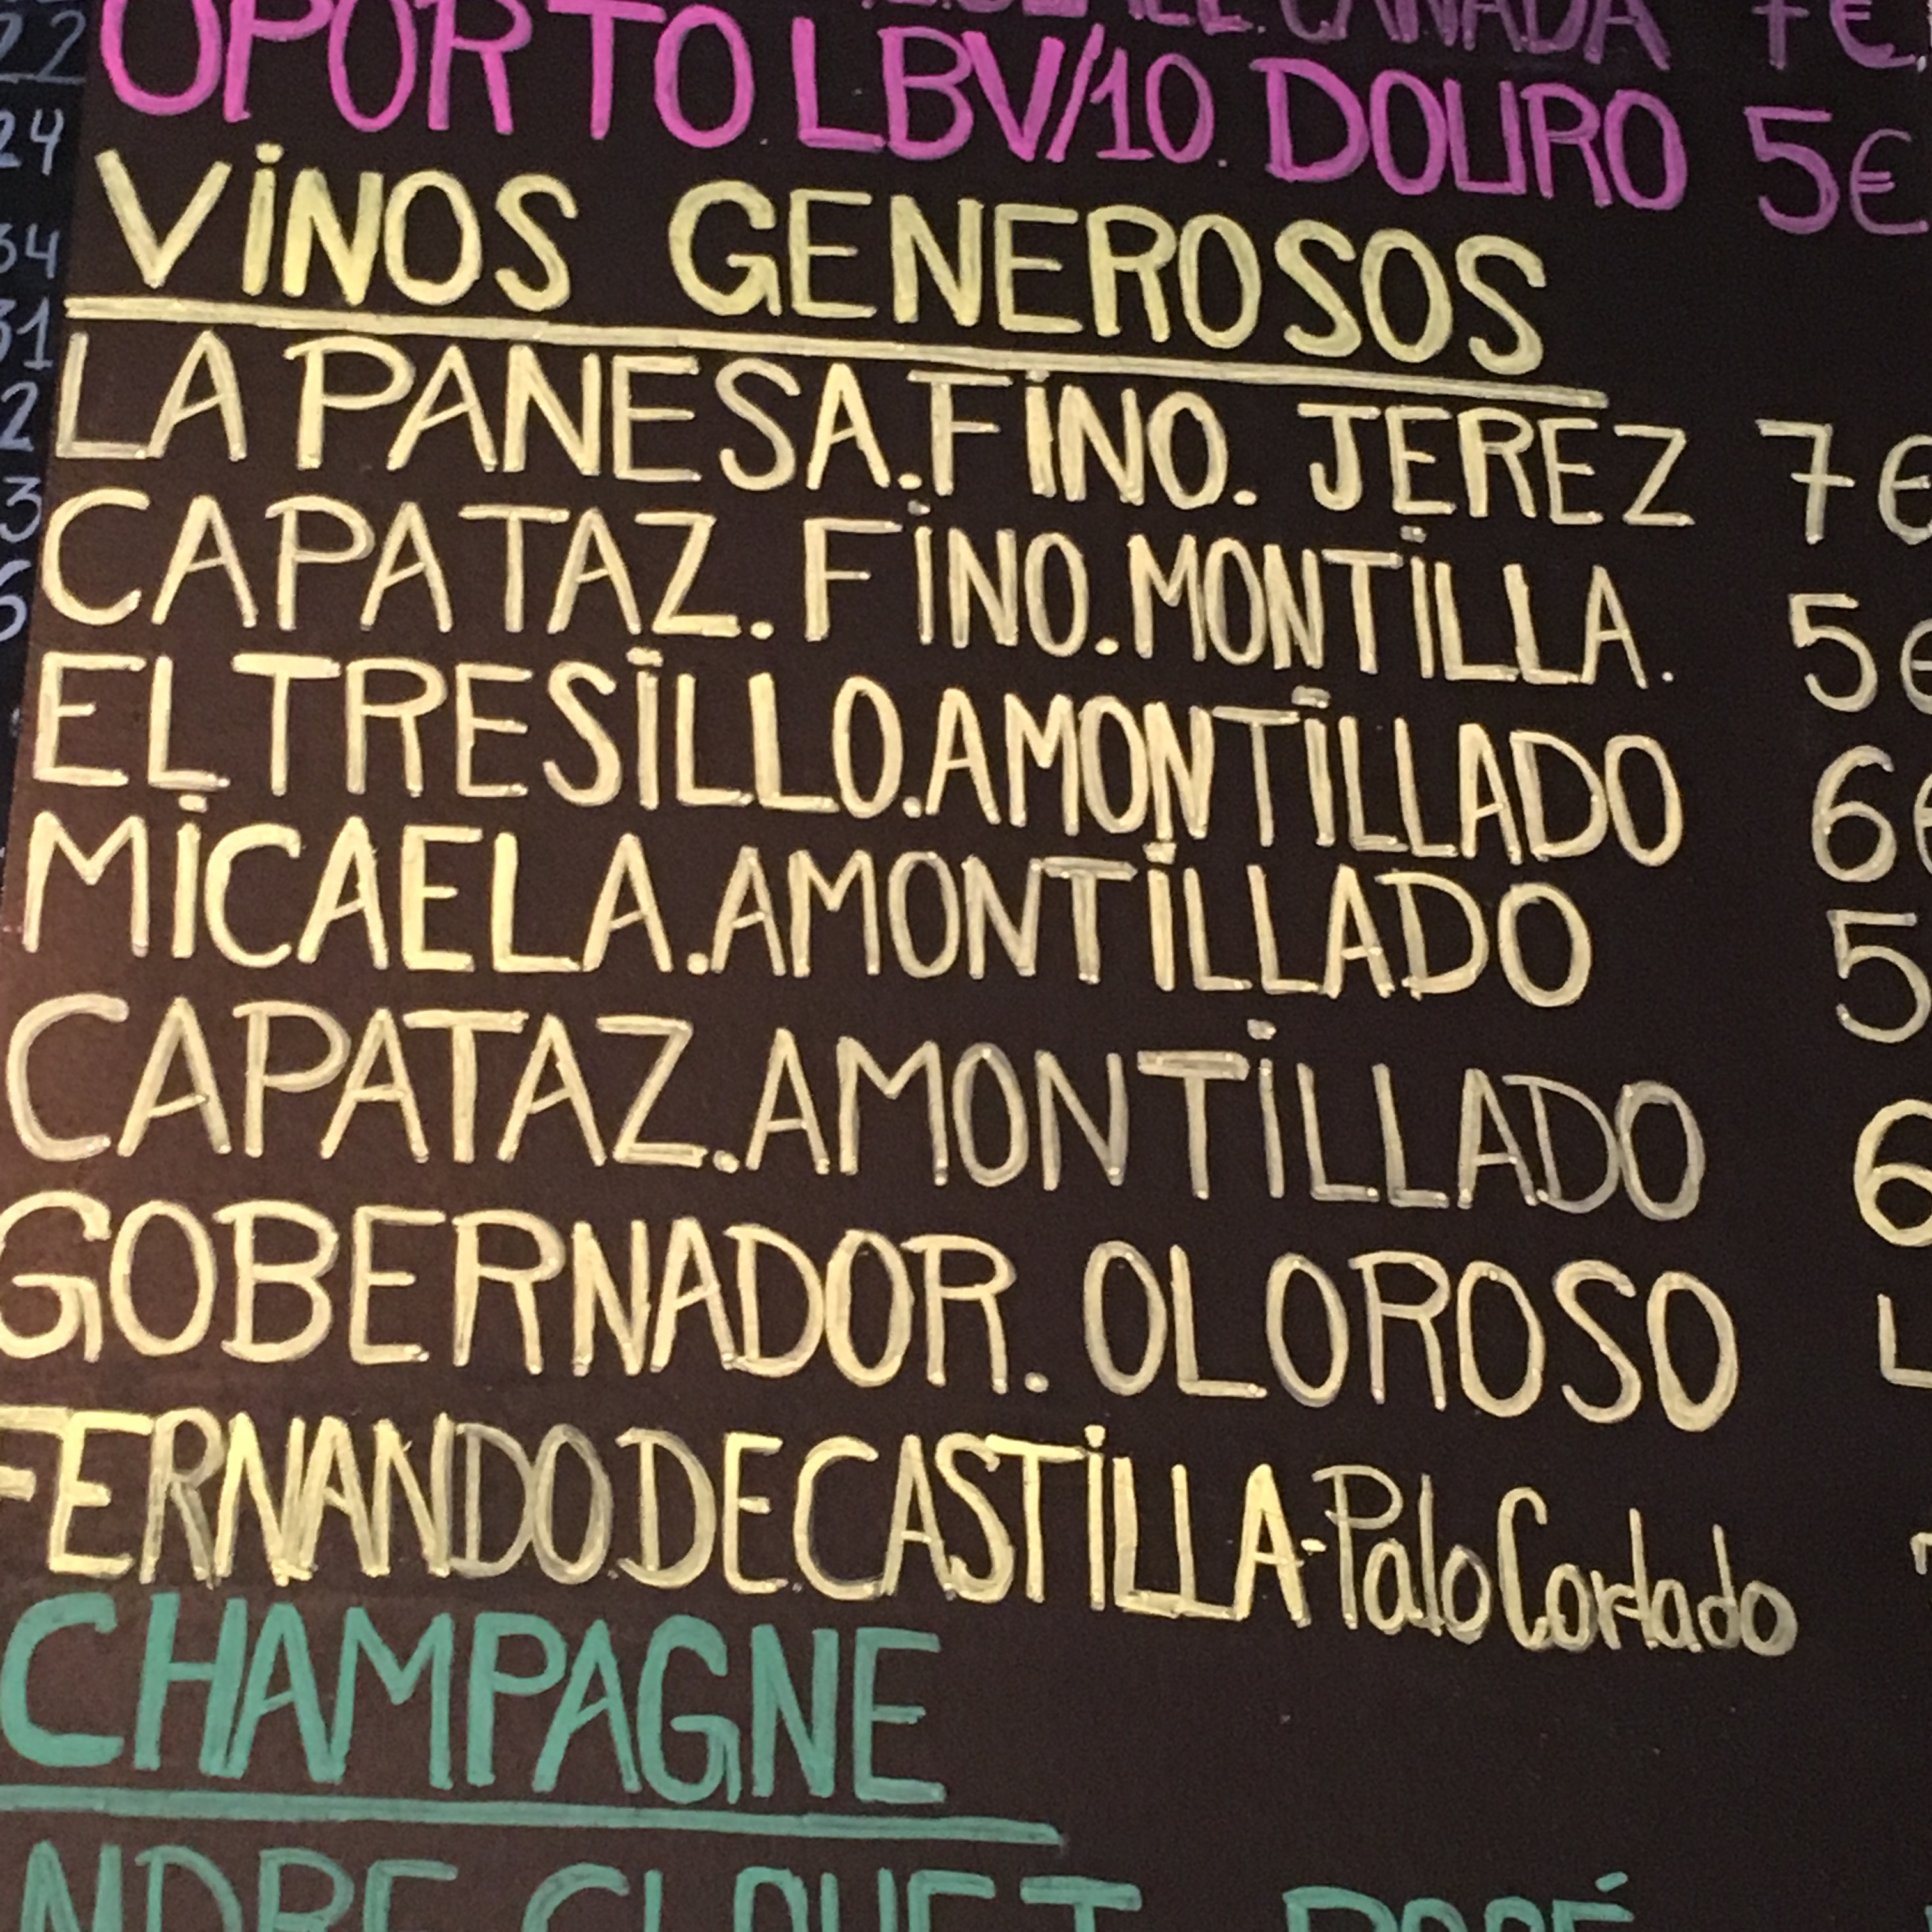 CANADA 7€
OPORTO LBV/10. DOURO 5€
VINOS GENEROSOS
LA PANESA. FINO. JEREZ 7€
CAPATAZ. FINO. MONTILLA. 5€
EL TRESILLO. AMONTILLADO 6€
MICAELA. AMONTILLADO 5
CAPATAZ. AMONTILLADO 6
GOBERNADOR. OLOROSO
FERNANDO DE CASTILLA-Palo Cortado
CHAMPAGNE
NDRE CLOUET ROSÉ
22
24
34
31
2
3
6